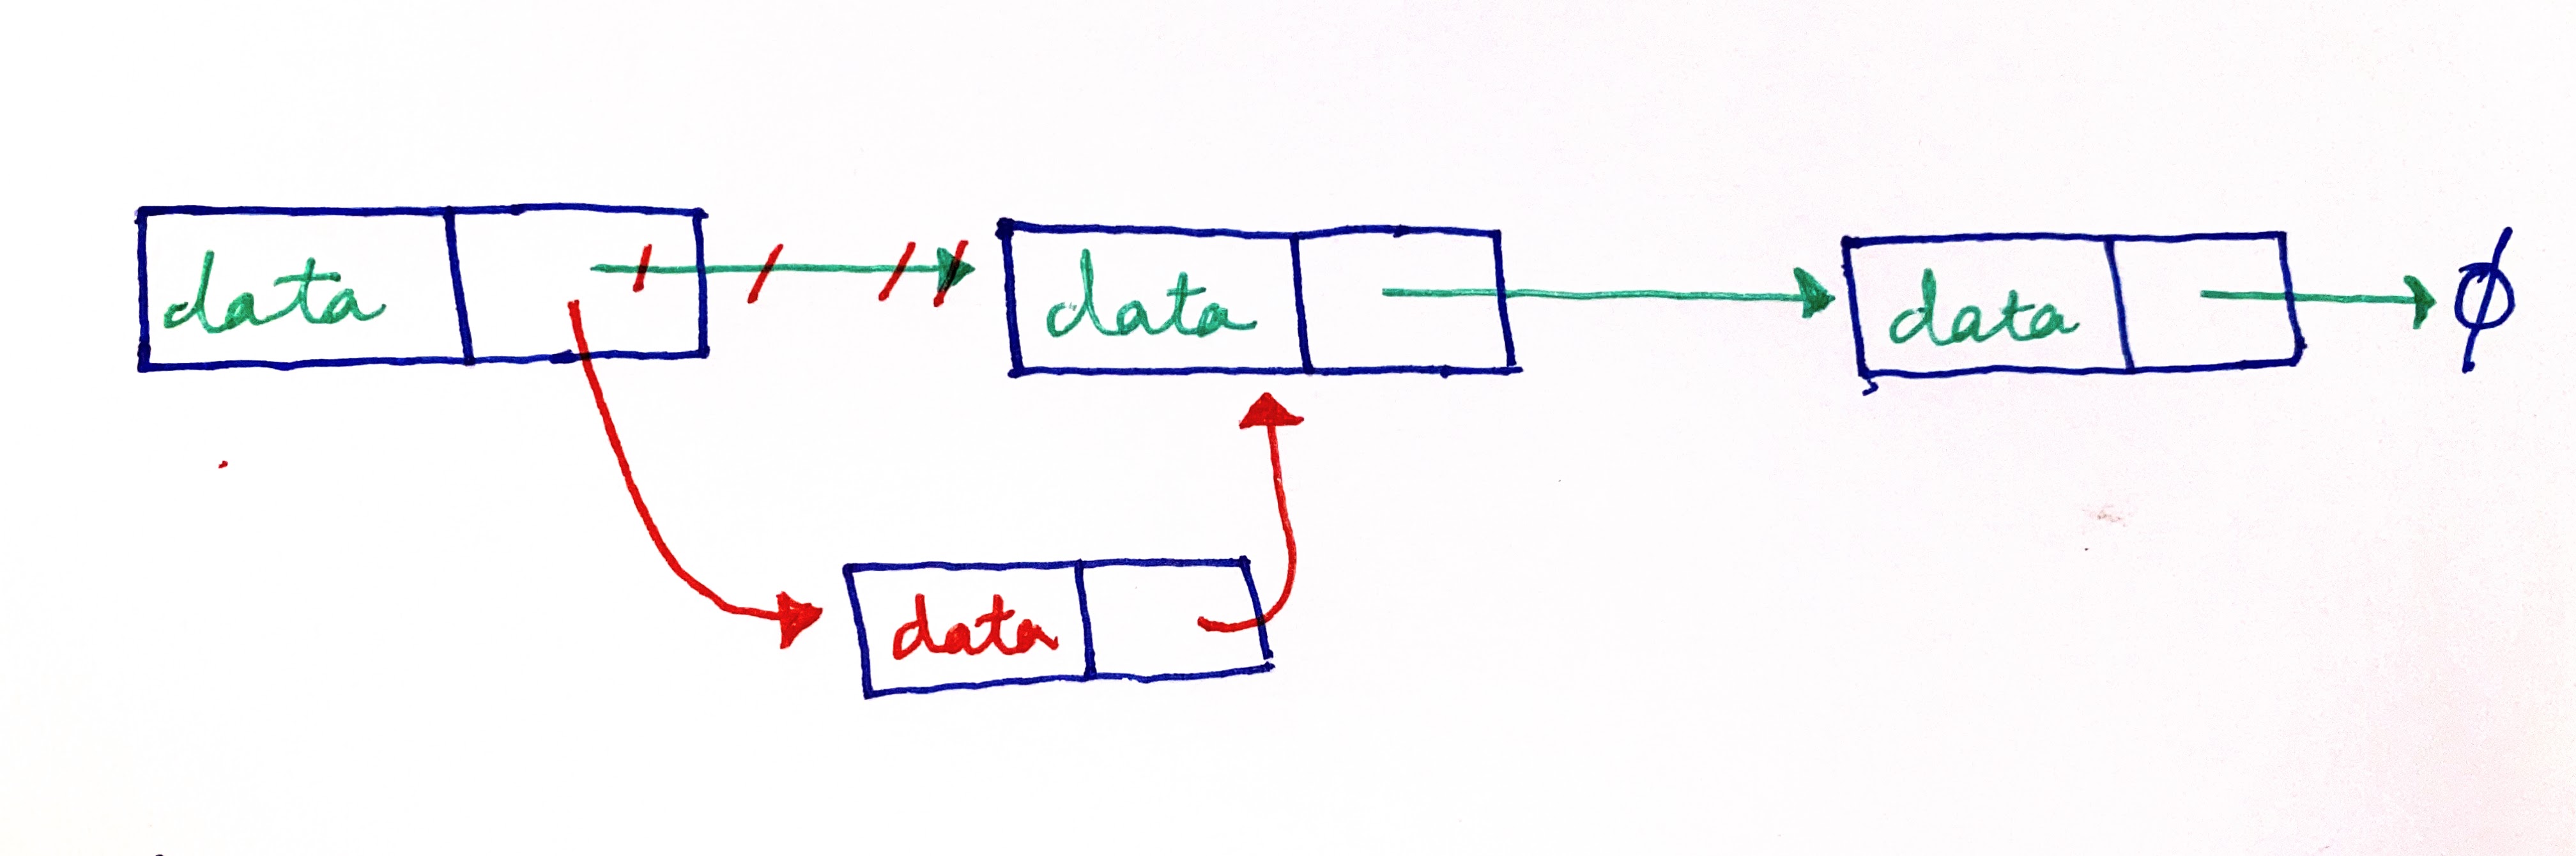 data data data ϕ
data